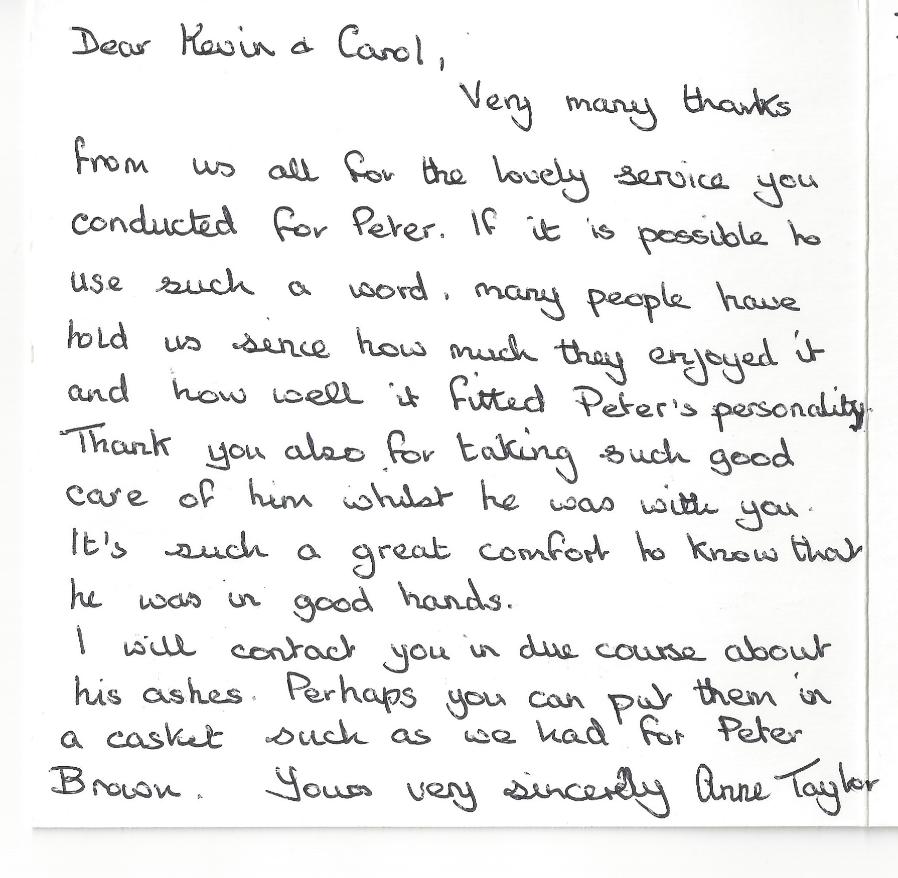 Dear Kevin & Carol,
Very many thanks
from us all for the lovely service you
conducted for Peter. If it is possible to
use such a word, many people have
told us sence how much they enjoyed it
and how well it fitted Peter's personality.
Thank you also for taking such good
care of him whilst he was with you.
It's such a great comfort to know that
he was in good hands.
I will contact you in due course about
his ashes. Perhaps you can put them in
a casket such as we had for Peter
Brown. Yours very sincerely Anne Taylor